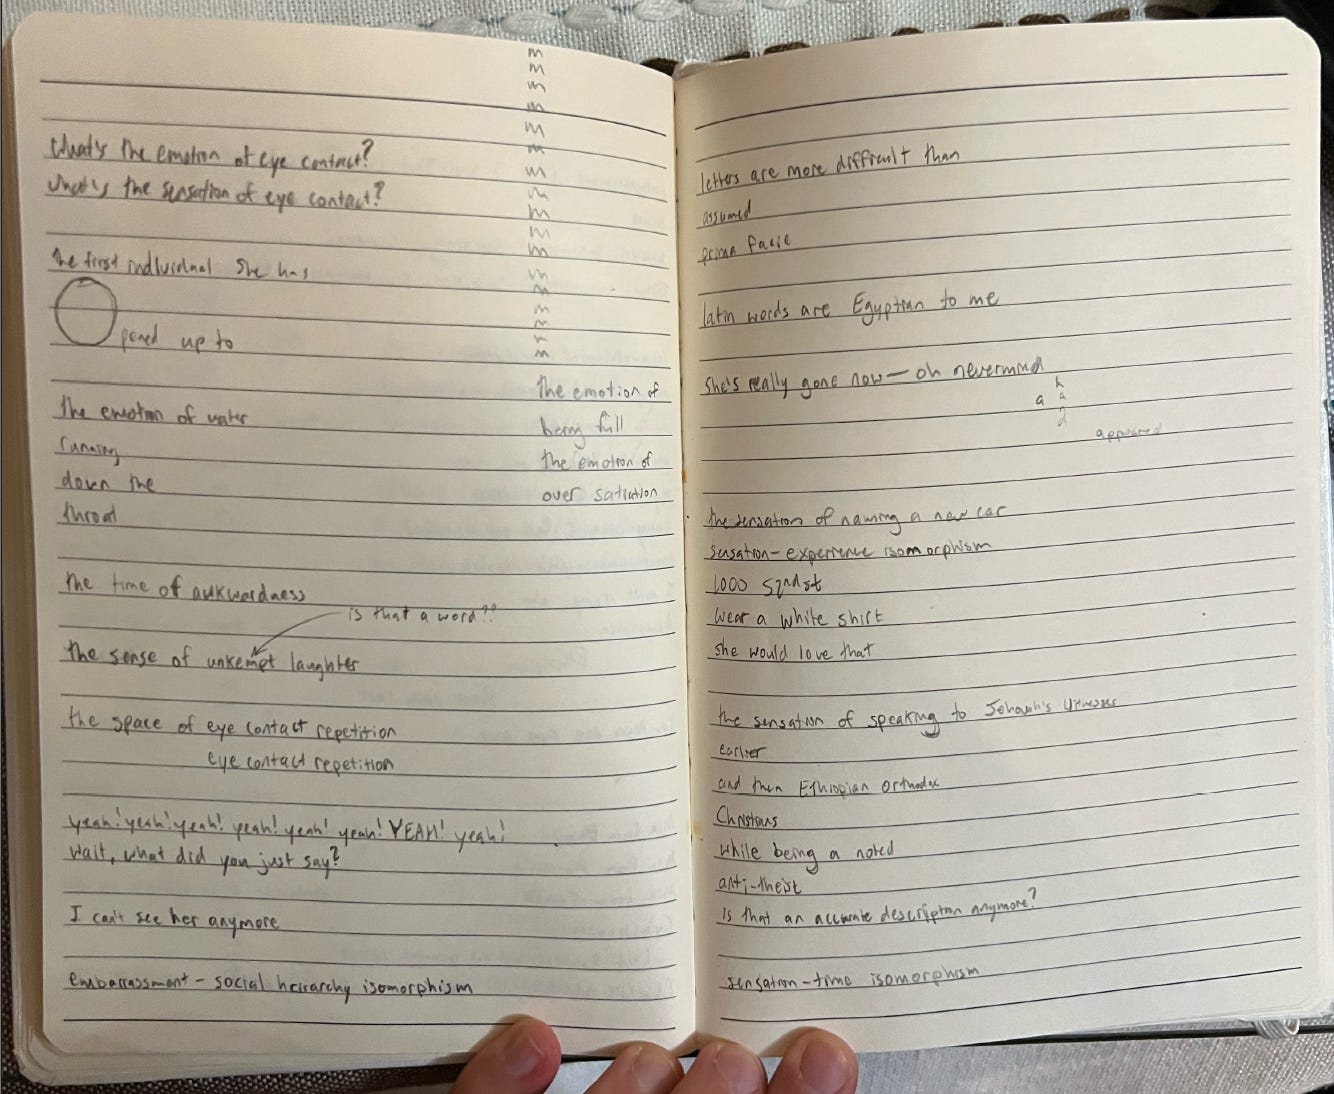 m
m
m
m
m
m
m
m
m
m
m
m
m
m
m
m
m
What's the emotion of eye contact?
What's the sensation of eye contact?
the first individual she has
O
pened up to
the emotion of water
running
down the
throat
the emotion of
being full
the emotion of
over satiation
the time of awkwardness
is that a word??
the sense of unkempt laughter
the space of eye contact repetition
eye contact repetition
yeah! yeah! yeah! yeah! yeah! yeah! YEAH! yeah!
Wait, what did you just say?
I can't see her anymore
embarrassment - social heirarchy isomorphism
letters are more difficult than
assumed
prima facie
latin words are Egyptian to me
she's really gone now — oh nevermind
a
appeared
the sensation of naming a new car
sensation - experience isomorphism
1000 52nd st
wear a white shirt
she would love that
the sensation of speaking to Jehovah's Witnesses
earlier
and then Ethiopian Orthodox
Christians
while being a noted
anti-theist
is that an accurate description anymore?
sensation - time isomorphism